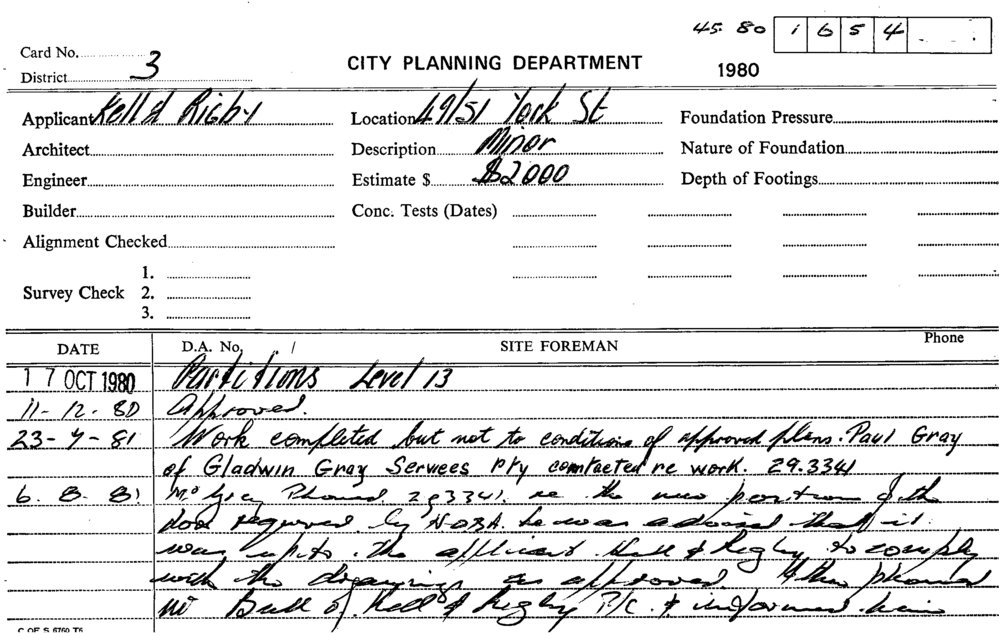 45. 80 1 6 5 4
Card No.
District 3
CITY PLANNING DEPARTMENT
1980
Applicant Kell & Rigby
Location 49/51 York St
Foundation Pressure
Architect
Description Minor
Nature of Foundation
Engineer
Estimate $ $2000
Depth of Footings
Builder
Conc. Tests (Dates)
Alignment Checked
1.
Survey Check 2.
3.
DATE D.A. No. / SITE FOREMAN Phone
17 OCT 1980 Partitions Level 13
11-12-80 Approved.
23-7-81 Work completed but not to conditions of approved plans. Paul Gray
of Gladwin Gray Servees Pty comtacted re work. 29.3341
6. 8. 81 Mr Gray Phoned 293341. re the new position of the
door required by he was advised that it
was up to the applicant Kell & Rigby to comply
with the drawings as approved phoned
Mr Bull of Kell & Rigby P/C. & informed him
C OF S 6760 T6